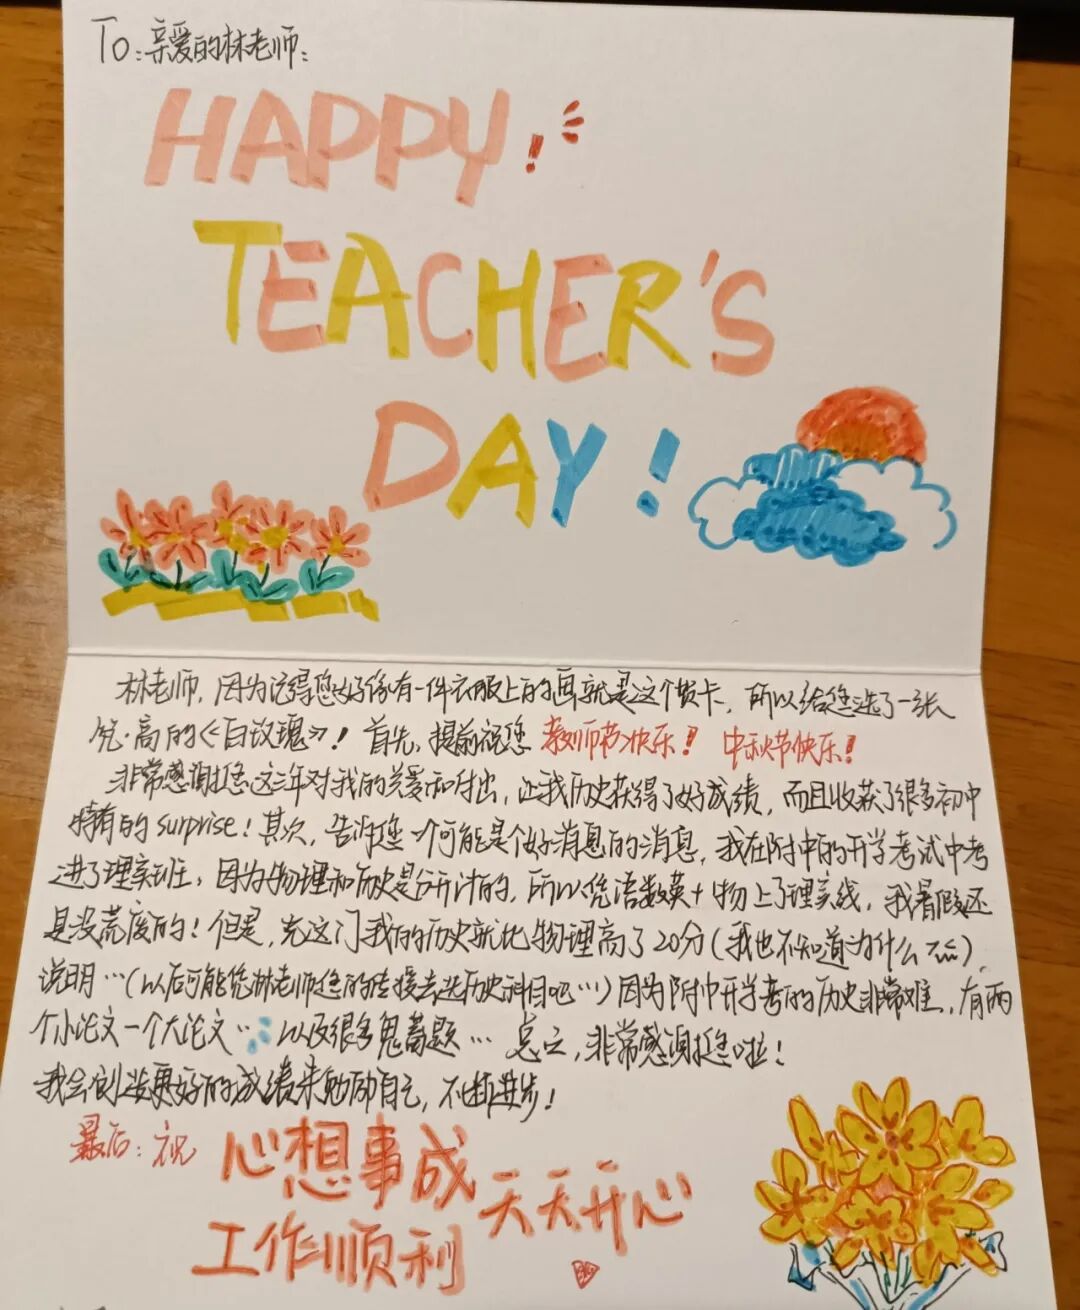 To:亲爱的林老师:
HAPPY!
TEACHER'S
DAY!
林老师,因为记得您好像有一件衣服上的画就是这个贺卡,所以给您选了一张
梵·高的《白玫瑰》!首先,提前祝您 教师节快乐! 中秋节快乐!
非常感谢您这三年对我的关爱和付出,让我历史获得了好成绩,而且收获了很多初中
特有的surprise!其次,告诉您一个可能是个好消息的消息,我在附中的开学考试中考
进了理实班,因为物理和历史是分开计的,所以凭语数英+物上了理实线,我暑假还
是没荒废的!但是,光这门我的历史就比物理高了20分(我也不知道为什么),
说明…(以后可能凭林老师您的传授去选历史科目吧…)因为附中开学考的历史非常难,有两
个小论文一个大论文…以及很多鬼畜题…总之,非常感谢您啦!
我会创造更好的成绩来勉励自己,不断进步!
最后:祝 心想事成 天天开心
工作顺利